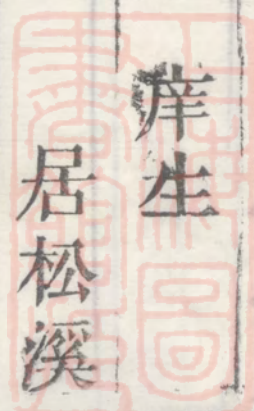 庠生
居松溪